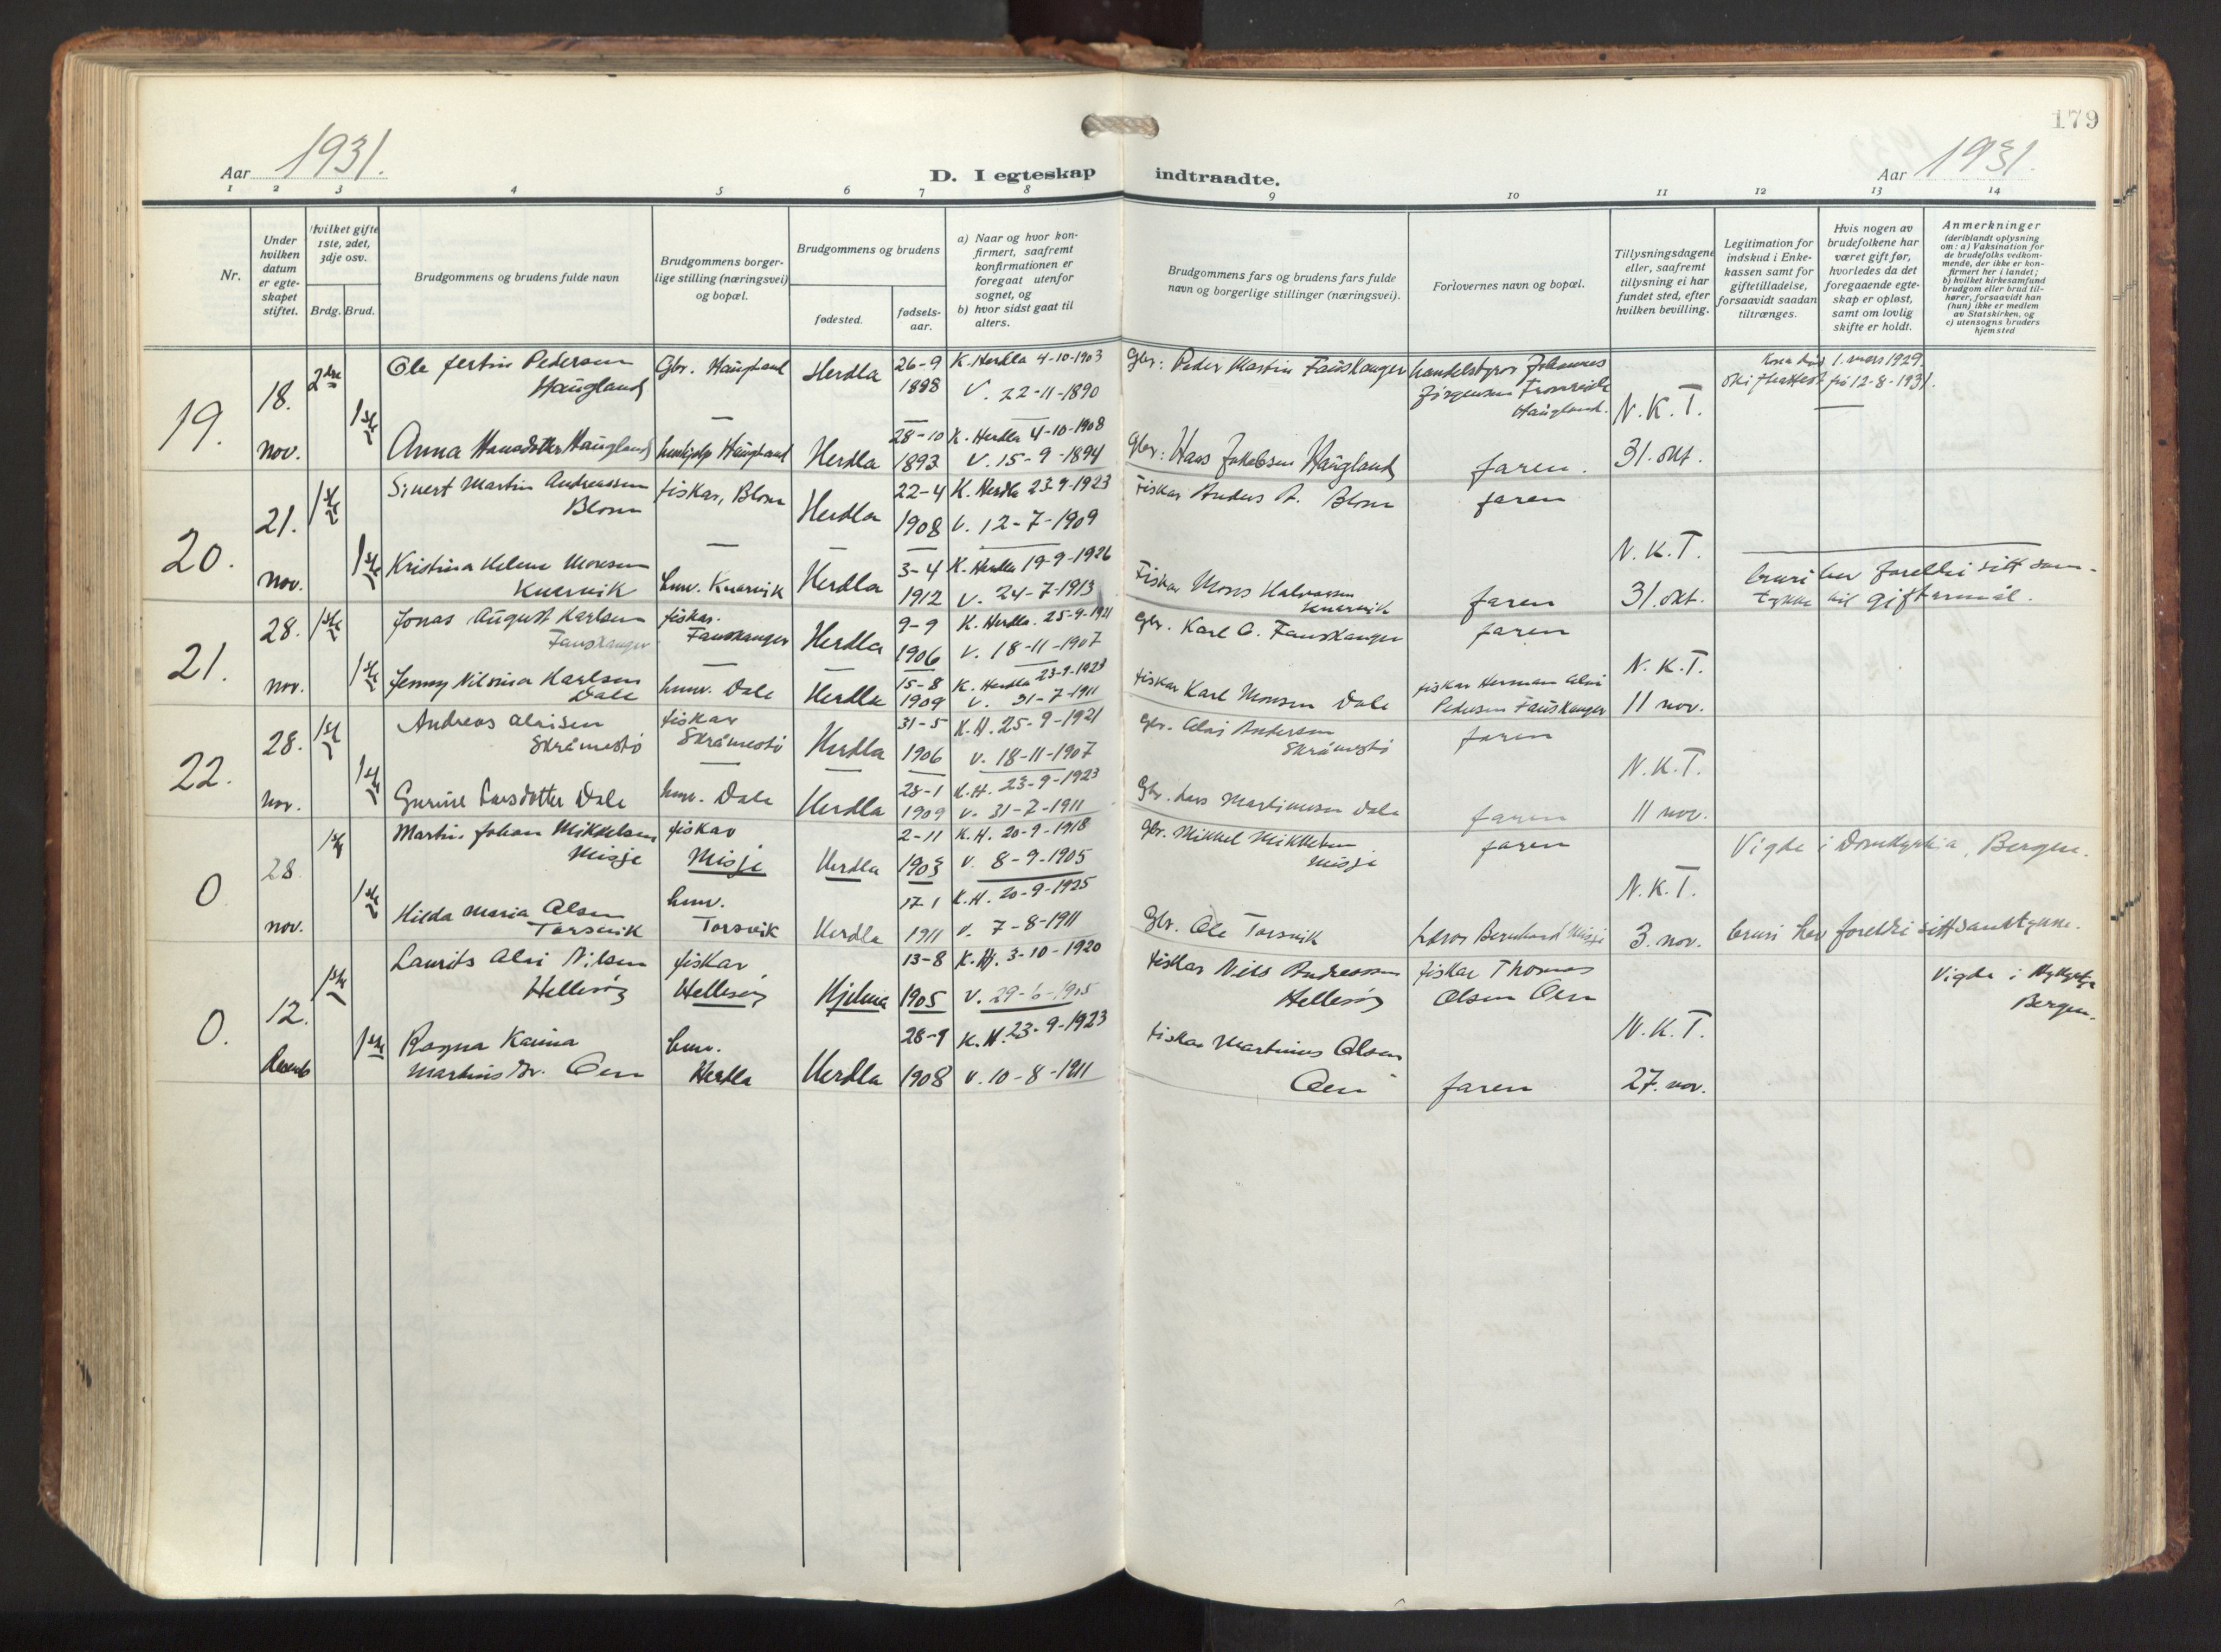 179
Aar 1931.
D. I egteskap indtraadte.
Aar 1931.
1 2 3 4 5 6 7 8 9 10 11 12 13 14
Nr.
Under hvilken datum er egteskapet stiftet.
Hvilket gifte 1ste, 2det, 3dje osv.
Brdg. Brud.
Brudgommens og brudens fulde navn
Brudgommens borgerlige stilling (næringsvei) og bopæl.
Brudgommens og brudens
fødested.
fødselsaar.
a) Naar og hvor konfirmert, saafremt konfirmationen er foregaat utenfor sognet, og
b) hvor sidst gaat til alters.
Brudgommens fars og brudens fars fulde navn og borgerlige stillinger (næringsvei).
Forlovernes navn og bopæl.
Tillysningsdagene eller, saafremt tillysning ei har fundet sted, efter hvilken bevilling.
Legitimation for indskud i Enkekassen samt for giftetilladelse, forsaavidt saadan tiltrænges.
Hvis nogen av brudefolkene har været gift før, hvorledes da det foregaaende egteskap er opløst, samt om lovlig skifte er holdt.
Anmerkninger (deriblandt oplysning om: a) Vaksination for de brudefolks vedkommende, der ikke er konfirmert her i landet; b) hvilket kirkesamfund brudgom eller brud tilhører, forsaavidt han (hun) ikke er medlem av Statskirken, og c) utensogns bruders hjemsted
19. 18. nov. 2dre
Ole Jertin Pedersen Haugland
Gbr. Haugland
Herdla
26-9 1888
K. Herdla 4-10-1903
V. 22-11-1890
Gbr: Peder Martin Fauskanger
Johannes Jörgensen
Haugland.
N. K. T.
31. okt.
1. mars 1929.
frå 12-8-1931.
1ste
Anna Hansdotter Haugland
Haugland
Herdla
28-10 1893
K. Herdla 4-10-1908
V. 15-9-1894
Gbr: Hans Jakobsen Haugland
faren.
20. 21. nov. 1ste
Sivert Martin Andreassen Blom
fiskar, Blom
Herdla
22-4 1908
K. Herdla 23-9-1923
V. 12-7-1909
Fiskar Anders A. Blom
faren
N. K. T.
31. okt.
1ste
Kristina Helene Monsen Knarvik
hmv. Knarvik
Herdla
3-4 1912
K. Herdla 19-9-1926
V. 24-7-1913
Fiskar Mons Halvorsen Knarvik
faren
bruri hev foreldri sitt samtykke til giftarmål.
21. 28. nov. 1ste
Jonas August Karlsen Fauskanger
fiskar. Fauskanger
Herdla
9-9 1906
K. Herdla. 25-9-1921
V. 18-11-1907
Gbr. Karl O. Fauskanger
faren
N. K. T.
11 nov.
1ste
Jenny Nilsina Karlsen Dale
hmv. Dale
Herdla
15-8 1909
K. Herdla 23-9-1923
V. 31-7-1911
fiskar Karl Monsen Dale
fiskar Herman Alvi Pedersen Fauskanger
22. 28. nov. 1ste
Andreas Alvisen Skråmestö
fiskar Skråmestö
Herdla
31-5 1906
K. H. 25-9-1921
V. 18-11-1907
Gbr. Alvi Andersen Skråmestö
faren
N. K. T.
11 nov.
1ste
Gurine Larsdotter Dale
hmv. Dale
Herdla
28-1 1909
K. H. 23-9-1923
V. 31-7-1911
Gbr. Lars Martinusen Dale
faren
0 28 nov. 1ste
Martin Johan Mikkelsen Misje
fiskar Misje
Herdla
2-11 1903
K. H. 20-9-1918
V. 8-9-1905
Gbr. Mikkel Mikkelsen Misje
faren
N. K. T.
3. nov.
Vigde i Domkyrkja, Bergen.
1ste
Hilda Maria Olsen Torsvik
hmv. Torsvik
Herdla
17-1 1911
K. H. 20-9-1925
V. 7-8-1911
Gbr. Ole Torsvik
Bernhard Misje
bruri hev foreldri sitt samtykke.
0. 12. desemb 1ste
Laurits Alvi Nilsen Hellesöy
fiskar Hellesöy
Hjelma
13-8 1905
K. H. 3-10-1920
V. 29-6-1905
fiskar Nils Andreassen Hellesöy
fiskar Thomas Olsen Oen
N. K. T.
27. nov.
Vigde i Nykyrkja Bergen.
1ste
Ragna Karina Martinis Dr. Oen
hmv. Herdla
Herdla
28-9 1908
K. H. 23-9-1923
V. 10-8-1911
fiskar Martinus Olsen Oen
faren